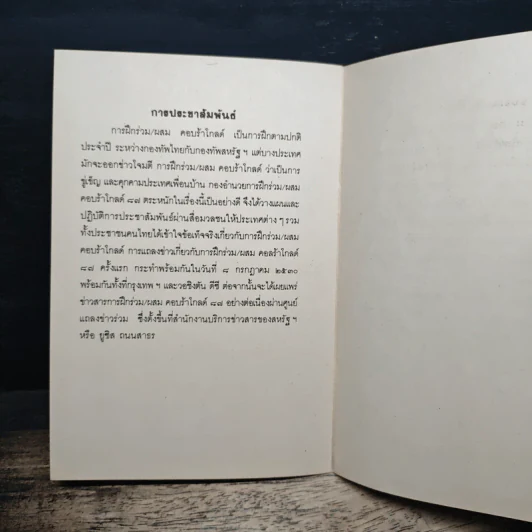 การประชาสัมพันธ์
การฝึกร่วม/ผสม คอบร้าโกลด์ เป็นการฝึกตามปกติ
ประจำปี ระหว่างกองทัพไทยกับกองทัพสหรัฐ ฯ แต่บางประเทศ
มักจะออกข่าวโจมตี การฝึกร่วม/ผสม คอบร้าโกลด์ ว่าเป็นการ
ขู่เข็ญ และคุกคามประเทศเพื่อนบ้าน กองอำนวยการฝึกร่วม/ผสม
คอบร้าโกลด์ ๘๗ ตระหนักในเรื่องนี้เป็นอย่างดี จึงได้วางแผนและ
ปฏิบัติการประชาสัมพันธ์ผ่านสื่อมวลชนให้ประเทศต่าง ๆ รวม
ทั้งประชาชนคนไทยได้เข้าใจข้อเท็จจริงเกี่ยวกับการฝึกร่วม/ผสม
คอบร้าโกลด์ การแถลงข่าวเกี่ยวกับการฝึกร่วม/ผสม คอลร้าโกลด์
๘๗ ครั้งแรก กระทำพร้อมกันในวันที่ ๘ กรกฎาคม ๒๕๓๐
พร้อมกันทั้งที่กรุงเทพ ฯ และวอชิงตัน ดีซี ต่อจากนั้นจะได้เผยแพร่
ข่าวสารการฝึกร่วม/ผสม คอบร้าโกลด์ ๘๗ อย่างต่อเนื่องผ่านศูนย์
แถลงข่าวร่วม ซึ่งตั้งขึ้นที่สำนักงานบริการข่าวสารของสหรัฐ ฯ
หรือ ยูซิส ถนนสาธร